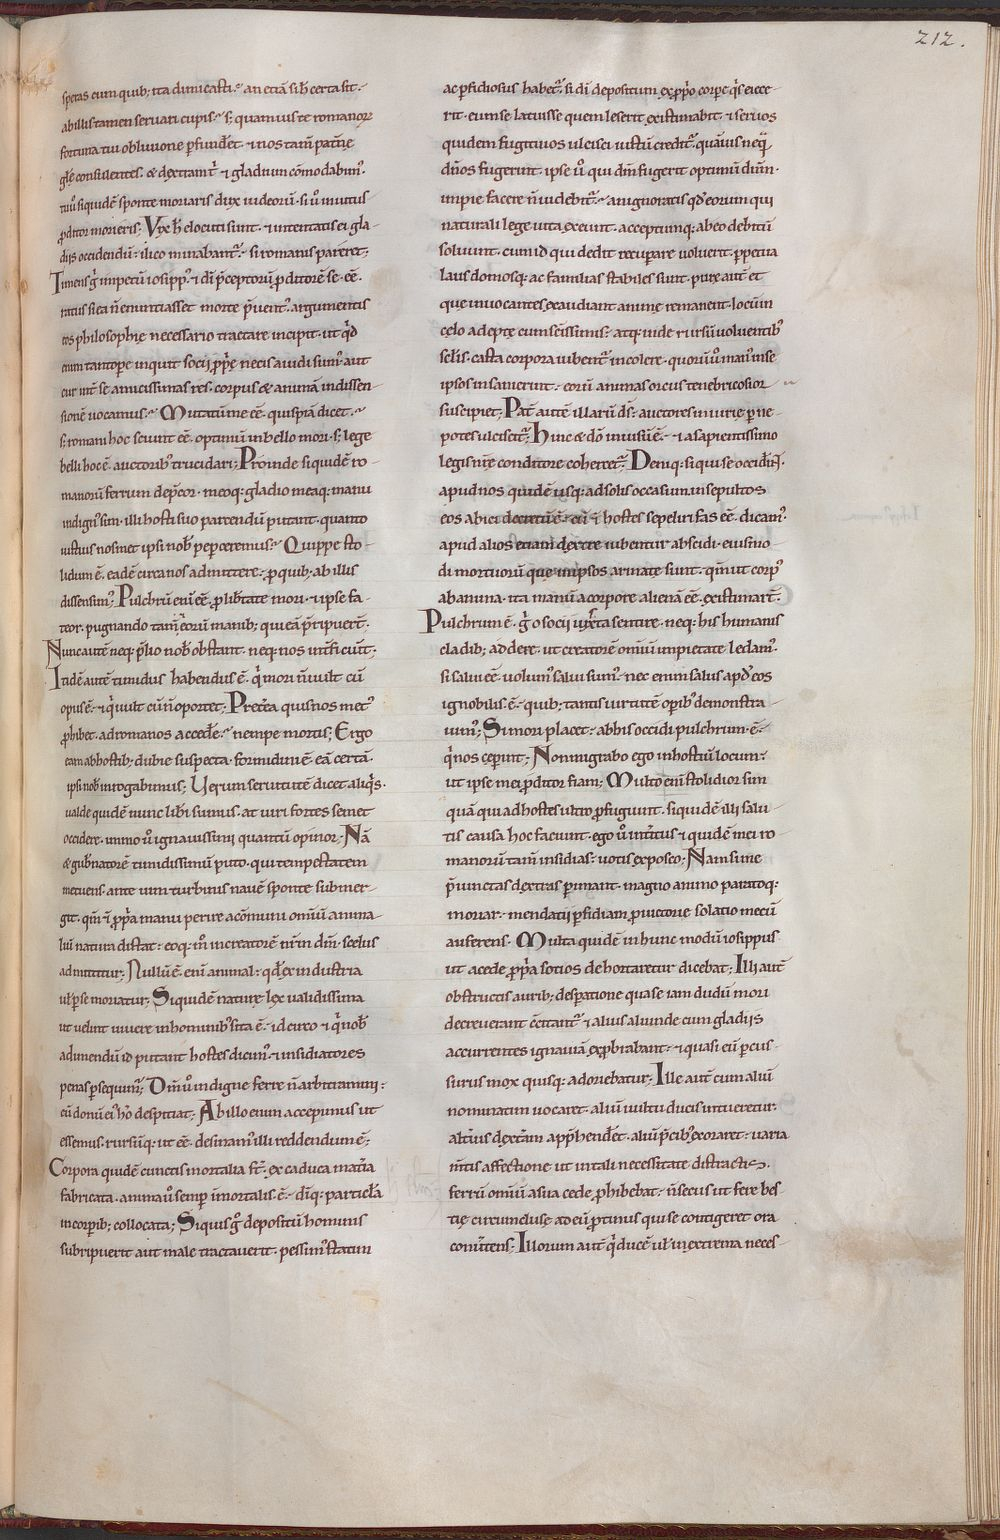 212.
speras cum quib; ita dimicasti. an etiā si hͦ certa sit.
ab illis tamen servari cupis. sꝫ quamuis te romanoꝝ
fortuna tui obliuione ꝑfuderit. nos tam̄ patrię
glē consulentes. & dextram t' & gladium cōmodabim'.
tuu siquidē sponte moriaris dux iudeorū. si ū inuitus
ꝓditor morieris; Vix hęc elocuti sunt. & intentatis ei gla-
diis occidendū ilico minabantur. si romanis pareret;
Timens g' impetū iosipp'. & dī p̄ceptorū ꝓditorē se eē.
ratus si ea n̄ enuntiasset morte p̄uent'. argumentis
eos philosophię necessario tractare incipit. ut qͥd
enim tantopere inquit socii ꝓprię necis auidi sum'. aut
cur int̄ se amicissimas res. corpus & animā in dissen-
sionē uocamus. Mutatū me eē quispiā dicet.
sꝫ romani hoc sciunt eē. optimū in bello mori. sꝫ lege
belli hoc ē. auctorib' trucidari; Proinde siquidē ro-
manorū ferrum dep̄cor. meoq; gladio meaq; manu
indign' sum. illi hosti suo parcendū putant. quanto
iustius nosmet ipsi nob̄ peperceremus. Quippe sto-
lidum ē. eadē circa nos admittere. ꝓ quib; ab illis
dissensim'; Pulchrū enī eē. ꝓ lib̄tate mori. & ipse fa-
teor. pugnando tam̄ & eorū manib; qui eā p̄ripuerͭ.
Nunc autē neq; p̄lio nob̄ obstant. neq; nos int̄ficiūt;
Itidē autē timidus habendus ē. qͥ mori n̄ uult cū
opus ē. & qͥ uult cū n̄ oportet; Pretĕa quis nos met'
ꝓhibet. ad romanos accedĕ. nempe mortis; Ergo
eam ab hostib; dubie suspecta formidini ē. eā certā
ipsi nob̄ inrogabimus; Verum seruitutē dicet aliqͥs.
ualde quidē nunc lib̄i sumus. at uiri fortes semet
occidere. immo ū ignauissimi quantū opinor; Nā
& gub̄natorē timidissimū puto. qui tempestatem
metuens. ante uim turbinis nauē sponte submer-
git. qm̄ & ꝓpͥa manu perire a cōmuni omniū anima-
liū natura distat. eoq; m̄ in creatorē nr̄m dm̄. scelus
admittitur; Nullū ē. enī animal. qd ex industria
uł ꝑ se moriatur; Siquidē naturę lex ualidissima
ut velint uiuere in hominib' sita ē. idcirco & qͥ nob̄
adimendū id putant hostes dicim'. & insidiatores
penas ꝑsequim'; Dm̄ ū indigne ferre n̄ arbitramini.
cū donū ei' hō despiciat; Ab illo enim accepimus ut
essemus. rursūq; ut eē desinam' illi reddendum ē;
Corpora quidē cunctis mortalia sͭ. & ex caduca mat̄ia
fabricata. anima ū semꝑ inmortalis ē. dīq; particla
in corpib; collocata; Siquis g' depositū hominis
subripuerit aut male tractauerit. pessim' statim
ac ꝑfidiosus habetͬ. si dī depositum ex ꝓpͥo corpe qͥs eiece-
rit. eum se latuisse quem leserit existimabit. & seruos
quidem fugitiuos ulcisci iustū creditͬ. quāuis neq̄
dn̄os fugerint. ipse ū qui dm̄ fugerit optimū dm̄.
impie facere n̄ uidebitͬ. an ignoratis qd eorum qui
naturali lege uita exeunt. acceptumq; ab eo debitū
soluunt. cum id qui dedit recupare voluerit. ꝑpetua
laus domosq; ac familias stabiles sunt. pure autē et
quę inuocantes exaudiant animę remanent. locū in
celo adeptę cum sc̄issimis. atq; inde rursū voluentib'
sęclis. casta corpora iubentͬ incolere. quorū ū man' in se
ipsos insanierunt. eorū animas orcus tenebricosior
suscipiet; Patͬ autē illarū ds̄. auctores iniurię ꝑ ne-
potes ulciscitͬ; Hinc & dō inuisū ē. & a sapientissimo
legis nr̄ę conditore coherceͬ; Deniq; si qui se occiderīt.
apud nos quidē usq; ad solis occasum insepultos
eos abici decretū ē. cū & hostes sepeliri fas eē. dicam'.
apud alios etiam dextre iubentur abscidi. eiusmo-
di mortuorū quę in ipsos armatę sunt. qm̄ ut corp'
ab anima. ita manū a corpore alienā eē. existimant.
Pulchrum ē. g' o socii iuxta sentire. neq; his humanis
cladib; addere. ut creatorē om̄iū impietate ledam'.
si salui eē. volum' salui sum'. nec enim salus apd eos
ignobilis ē. quib; tantis uirtutē opib' demonstra-
uim'; Si mori placet. ab his occidi pulchrum ē.
qͥ nos ceperint; Non migrabo ego in hostiū locum.
ut ipse mei ꝓditor fiam; Multo enī stolidior sim
quā qui ad hostes ultro ꝓfugiunt. siquidē illi salu-
tis causa hoc faciunt. ego ū intitus & quidē mei ro-
manorū tam̄ insidias. uotis exposco; Nam si me
p̄ iunctas dextras ꝑimant. magno animo paratoq;
moriar. mendacii ꝑfidiam ꝓ uictorię solatio mecū
auferens. Multa quidē in hunc modū iosippus
ut a cede ꝓpͥa sotios dehortaretur dicebat; Illi autē
obstructis aurib; despatione quasi iam dudū mori
decreuerant citatͬ & alius aliunde cum gladiis
accurrentes ignauiā exꝓbrabant. & quasi eū ꝑcus-
surus mox quisq; adoriebatur; Ille autē cum aliū
nominatim uocaret. aliū uultu ducis intueretur.
alt̄ius dextͣm app̄henderet. aliū p̄cib' exoraret. uaria
m̄tis affectione ut in tali necessitate distractus.
ferrū om̄iū a sua cede ꝓhibebat. n̄ secus ut fere bes-
tię circumclusę ad eū ꝓtinus qui se contigeret ora
conūtens; Illorum autē qͥ ducē uł in extrema neces-